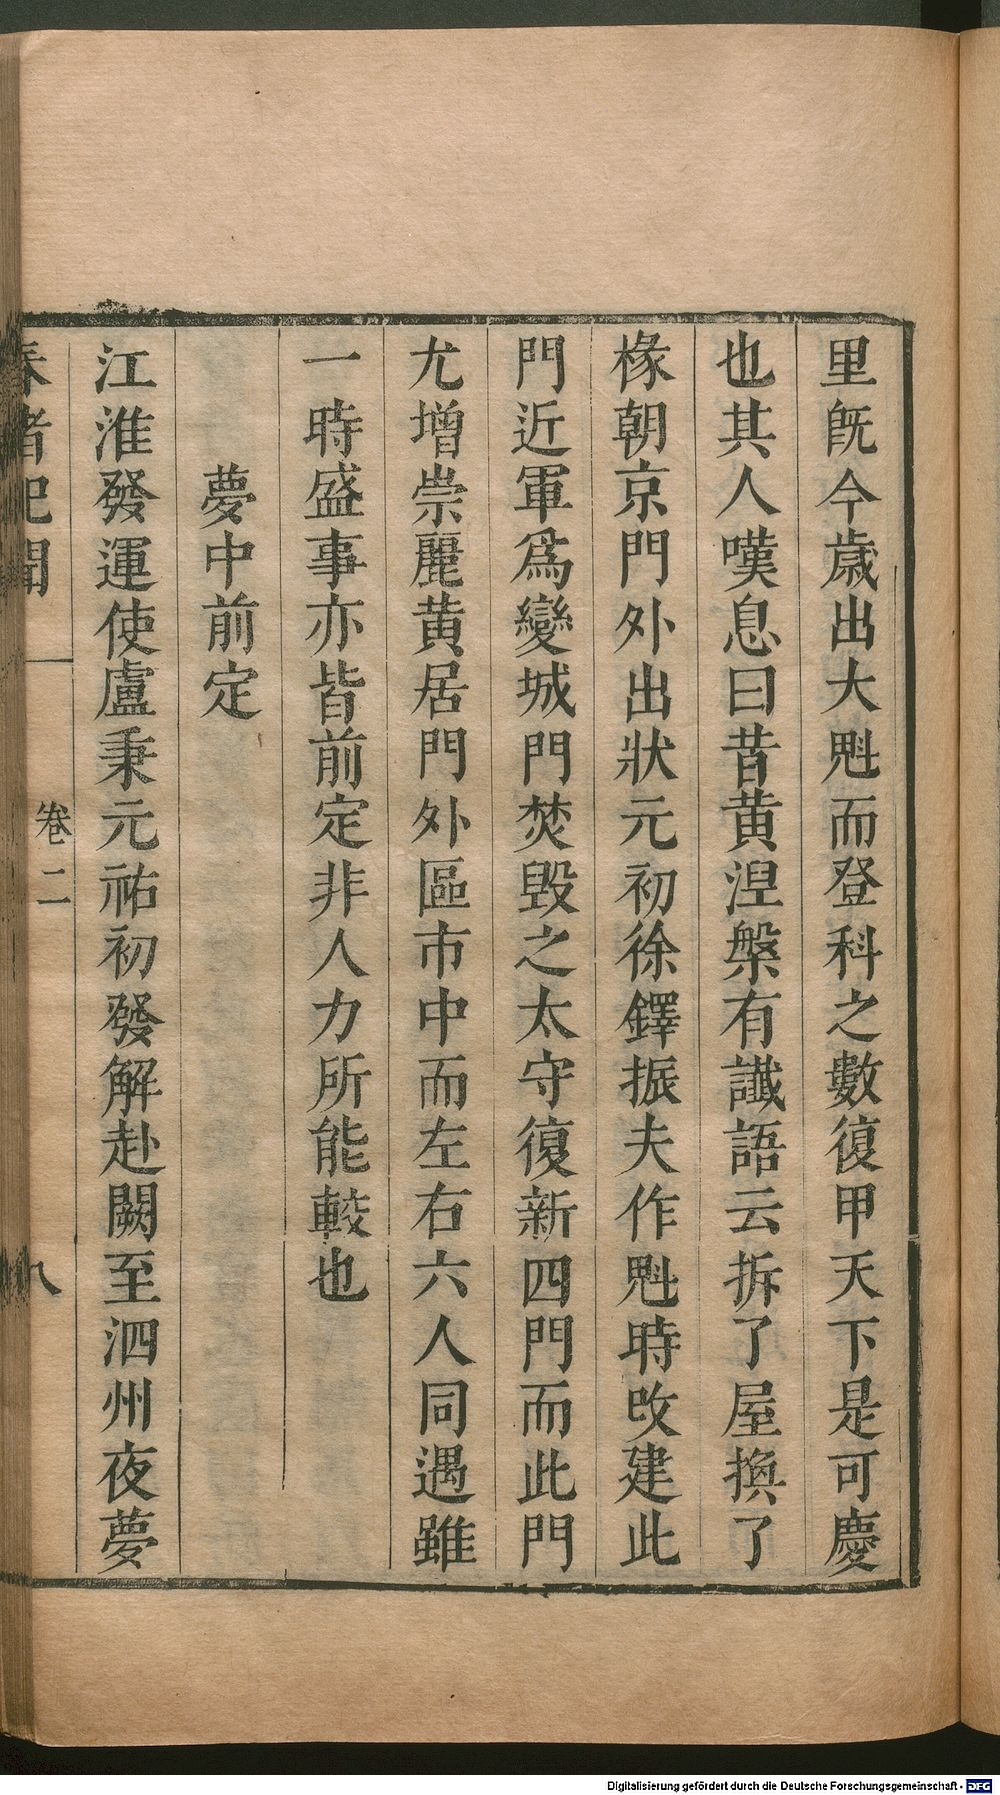 里旣今歲出大魁而登科之數復甲天下是可慶
也其人嘆息曰昔黄涅槃有讖語云拆了屋換了
椽朝京門外出狀元初徐鐸振夫作魁時改建此
門近軍爲變城門焚毀之太守復新四門而此門
尤增崇麗黄居門外區市中而左右六人同遇雖
一時盛事亦皆前定非人力所能較也
夢中前定
江淮發運使盧秉元祐初發解赴闕至泗州夜夢
春渚紀聞 卷二 八
Digitalisierung gefördert durch die Deutsche Forschungsgemeinschaft - DFG